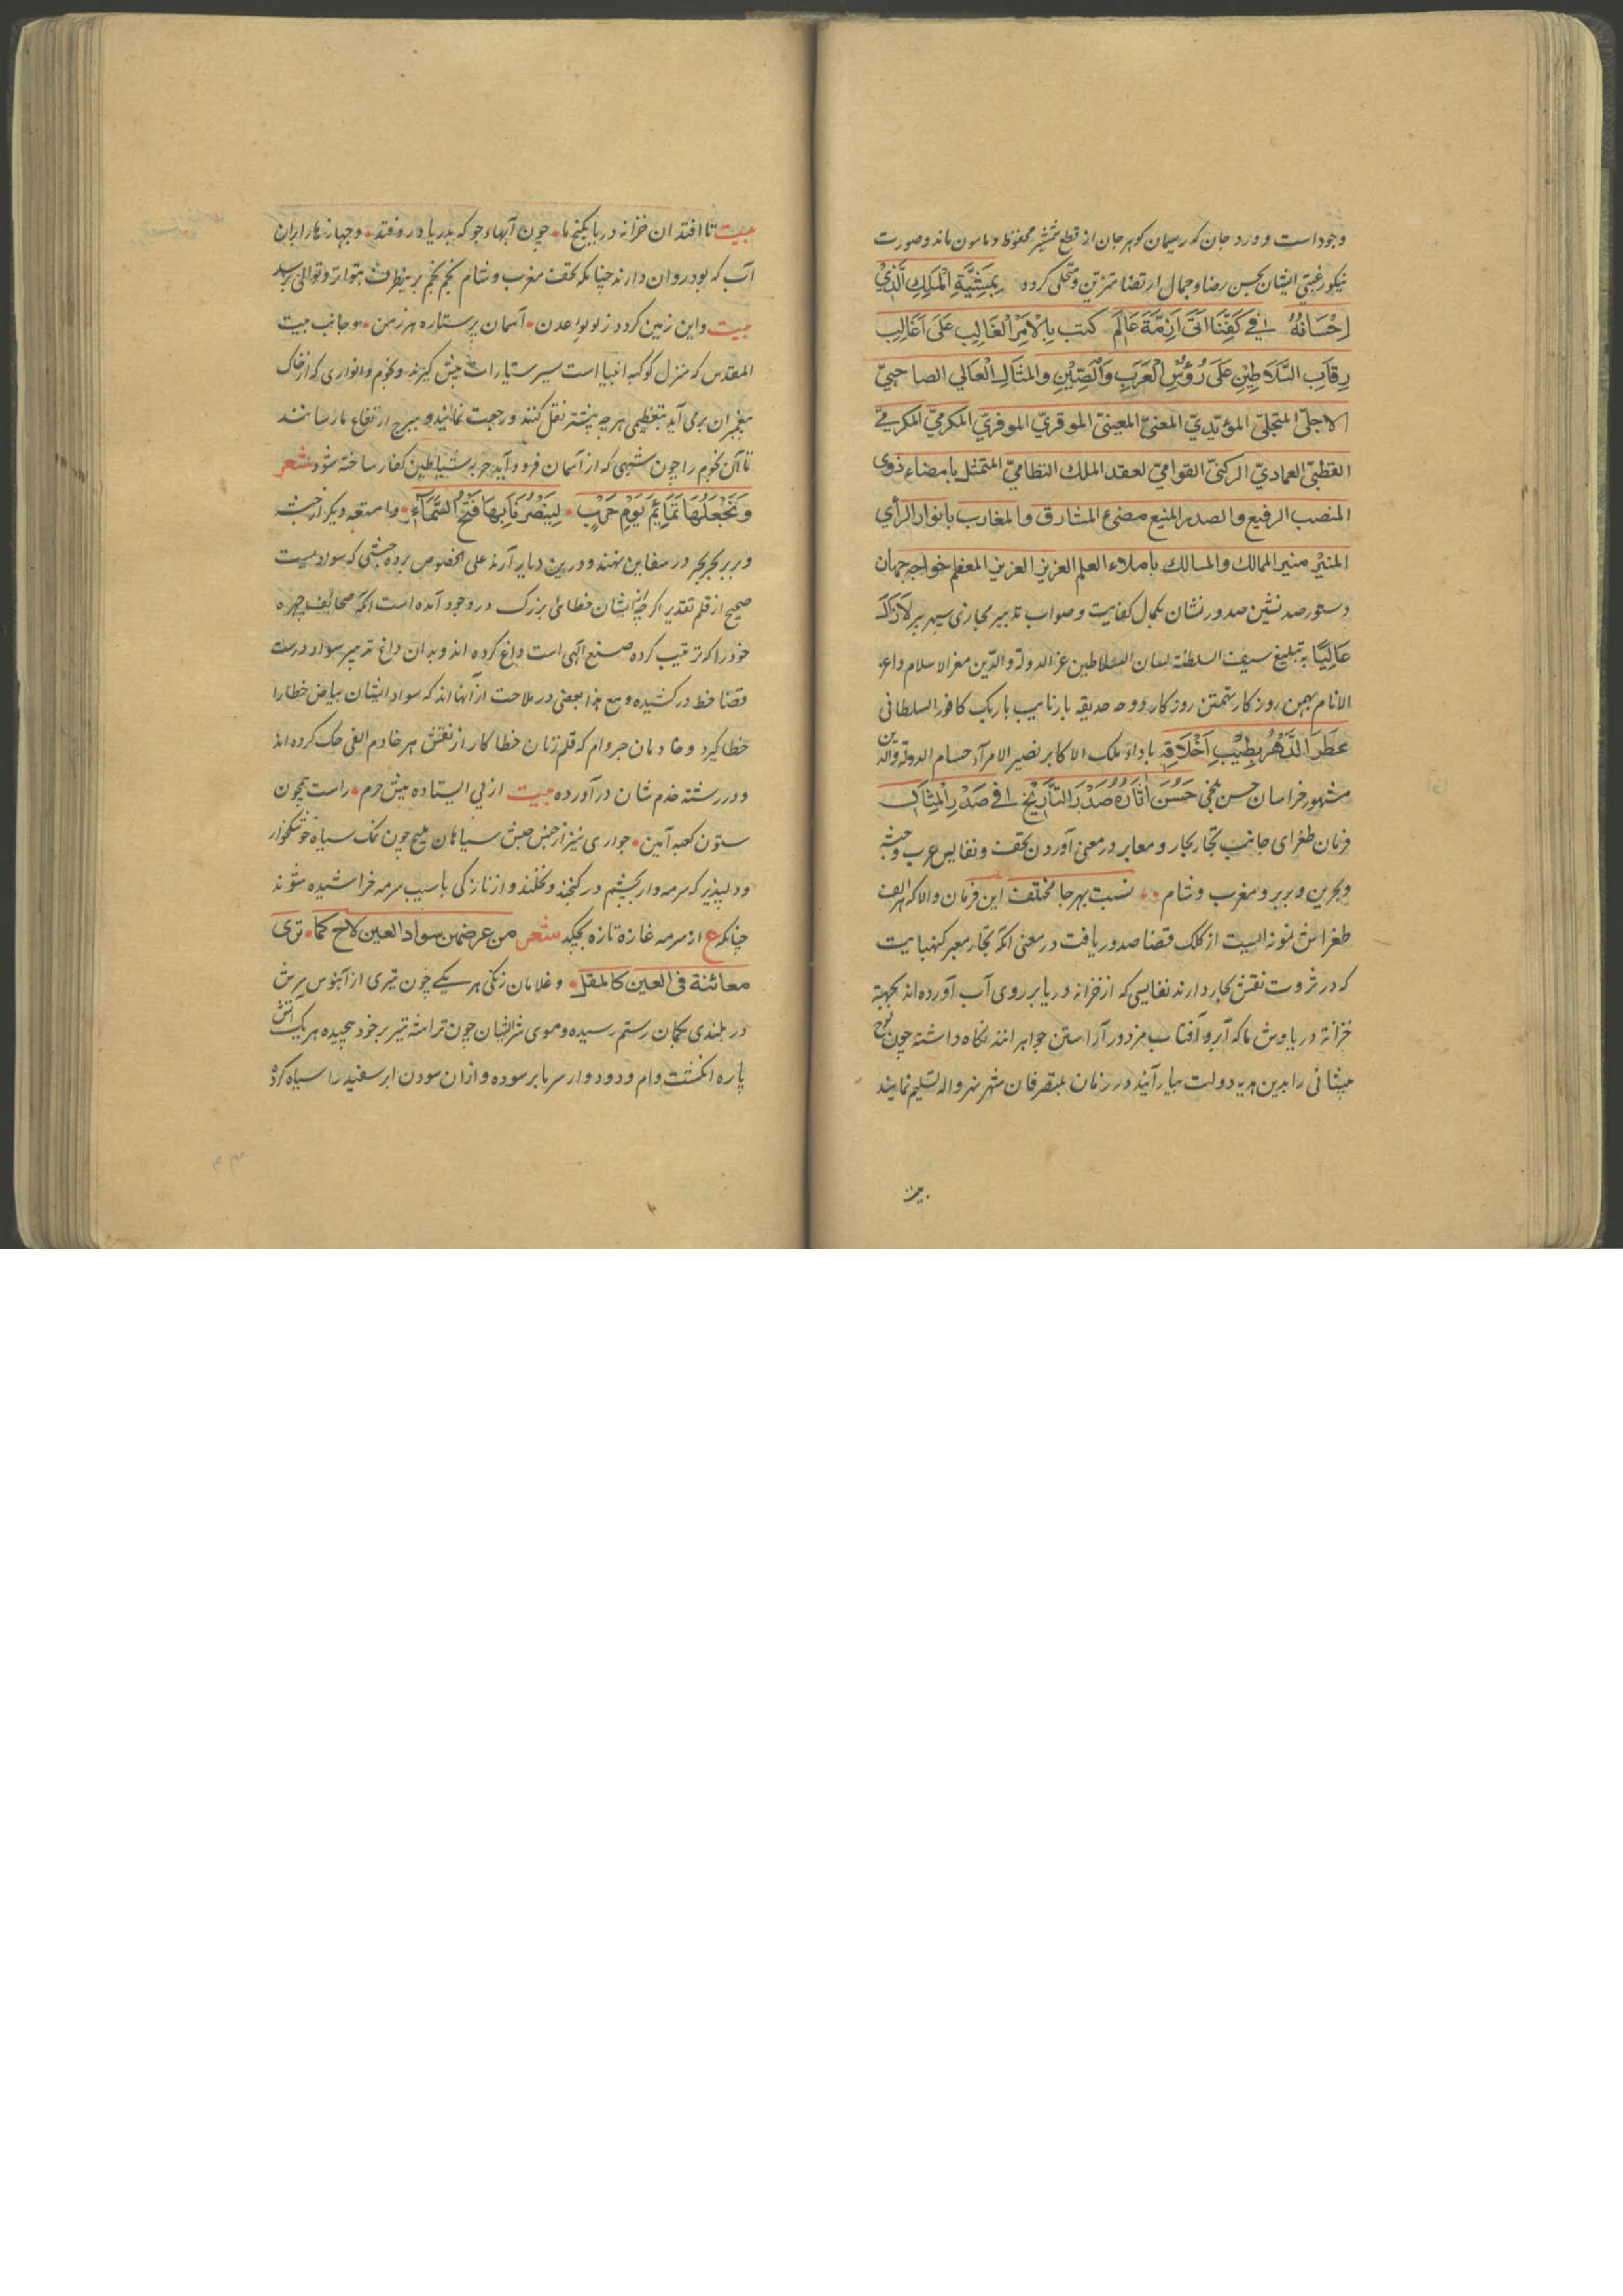 وجود است و ورد جان که ریسمان کوهر جان از قطع شمشیر محفوظ و مامون ماند و صورت
نیکو رغبتی ایشان بحسن رضا و جمال ارتضا متزین و متحلی کرده بِمَشِیَّةِ الْمَلِكِ الَّذِيْ
اِحْسَانُهُ فِي كَفِّنَا اَزِمَّةَ عَالَم كتب بِالْاَمْرِ الْغَالِبِ عَلَى اَغَالِبِ
رِقَابِ السَّلَاطِيْنِ عَلَى رُؤُسِ الْعَرَبِ وَالصِّيْنِ والمثال العالي الصاحبيّ
الاجلّي المتجلّي المؤيّديّ المغنيّ المعينيّ الموقريّ الموفريّ المكرميّ
القطبيّ العماديّ الركنيّ القواميّ لعقد الملك النظاميّ المتمثل بامضاء ذوى
المنصب الرفيع والصدر المنيع مضئ المشارق والمغارب بانوار الرأي
المنير منير الممالك والمسالك باملاء العلم العزيز العزيز المعظم خواجه جهان
دستور صد نشین صدور نشان بکمال کفایت و صواب تدبیر مجاری سپهر بر لازال
عَالِيًا به تبلیغ سیف السلطنة لسان السلاطین عز الدولة والدّین معز الاسلام داعی
الانام بهمن روزکار تهمتن روزکار دوحه حدیقه بار نایب باربک کافور السلطانی
عَطَّرَ الدَّهْرَ بِطِيْبِ اَخْلَاقِهِ باداء ملک الاکابر نصیر الامراء حسام الدولة والدین
مشهور خراسان حسن بلخی حَسُنَ اٰثَارُهُ صَدْرَ التَّارِيْخِ فِي صَدْرِ الْمِثَالِ
فرمان طغرای جانب تجار بحار و معابر در معنی آوردن تحف و نفایس عرب و حبشه
و بحرین و بربر و مغرب و شام نسبت بهر جا مختلف این فرمان والا که هر الف
طغراش نمونه ایست از کلک قضا صدور یافت در معنی آنکه تجار معبر کنهبایت
که در ثروت نقش بحار دارند نفایسی که از خزانه دریا بر روی آب آورده اند بجهة
خزانه دریاوش ما که آبرو آفتاب مزدور آراستن جواهر انند نکاه داشته چون لوح
پیشانی را بدین هدیه دولت بیارآیند در زمان بمتصرفان شهر نهرواله تسلیم نمایند
بیت
بیت تا افتد آن خزانه دریا بکنج ما چون آبهاء جو که بدریا در وفتد و جهازها را بران
آب که بود روان دارند چنانکه تحف مغرب و شام نجم نجم برینطرف بتواتر و توالی برسد
بیت و این زمین کردد ز لولوا عدن آسمان پر ستاره هر زمن و جانب بیت
المقدس که منزل کوکبه انبیا است سیر ستیارات پیش کیرند و نجوم و انواری که از خاک
پیغمبران برمی آید بتعظیمی هر چه پیشتر نقل کنند و رجعت نمایند و ببرج ارتفاع ما رسانند
تا آن نجوم را چون شهبی که از آسمان فرود آید حربه شیاطین کفار ساخته شود شعر
وَنَجْعَلُهَا تَمَائِمَ يَوْمِ حَرْبٍ لِيَنْصُرَنَا بِهَا فَتْحُ السَّمَاءِ و امتعه دیکر از حبشه
و بربر بحر بحر در سفاین نهند و درین دیار آرند علی الخصوص برده حبشی که سواد پست
صحیح از قلم تقدیر اکرچه از ایشان خطائ بزرک در وجود آمده است آنکه صحائف چهره
خود را که ترتیب کرده صنع آلهی است داغ کرده اند و بدان داغ تدمیر سواد درست
قضا خط در کشیده و مع هذا بعضی در ملاحت از آنها اند که سواد ایشان بیاض خطا را
خطا کیرد و خادمان جروام که قلم زنان خطا کار از نقش هر خادم الفی حک کرده اند
و در رشته خدم شان درآورده بیت از پی ایستاده پیش حرم راست همچون
ستون کعبه آمین جواری نیز از جنس حبش سیاهان ملیح چون نمک سیاه خوشکوار
و دلپذیر که سرمه وار بچشم در کنجند و نخلند و از نازکی باسیب سرمه خراشیده شوند
چنانکه ع از سرمه غازه تازه بچکد شعر من عرضهن سواد العین لاح کما ترى
معائنة فی العین کالمقل و غلامان زنکی هر یکی چون تیری از آبنوس پرش
در بلندی بکمان رستم رسیده و موی سر ایشان چون تراشه تیر بر خود پیچیده هر یک آتش
پاره انکشت وام و دود وار سر بابر سوده و از آن سودن ابر سفید را سیاه کرد